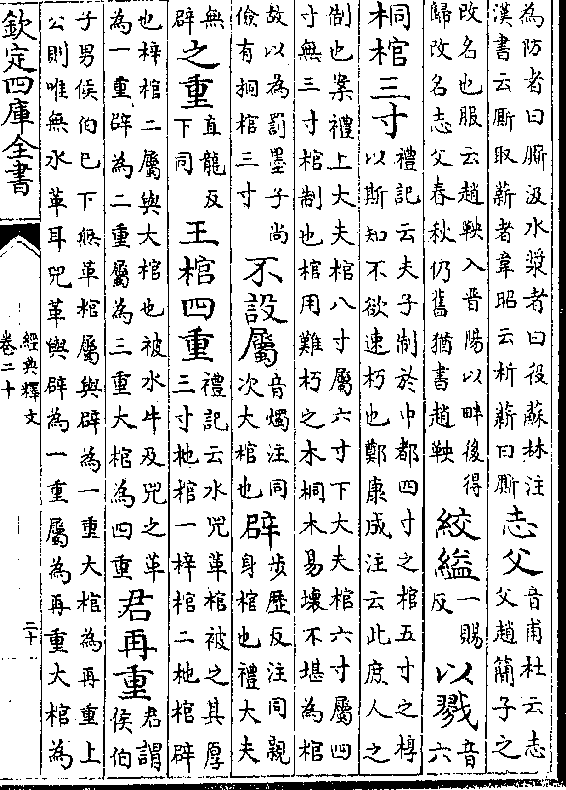 為防者曰廝汲水漿者曰役蘇林注
漢書云廝取薪者韋昭云析薪曰廝
志父
音甫杜云志
父趙簡子之
改名也服云趙鞅入晉陽以畔後得
歸改名志父春秋仍舊猶書趙鞅
絞縊
一賜
反
以戮
音
六
桐棺三寸
禮記云夫子制於中都四寸之棺五寸之椁
以斯知不欲速朽也鄭康成注云此庶人之
制也案禮上大夫棺八寸屬六寸下大夫棺六寸屬四
寸無三寸棺制也棺用難朽之木桐木易壞不堪為棺
故以為罰墨子尚
儉有桐棺三寸
不設屬
音燭注同
次大棺也
辟
步歷反注同親
身棺也禮大夫
無
辟
之重
直龍反
下同
王棺四重
禮記云水兕革棺被之其厚
三寸杝棺一梓棺二杝棺辟
也梓棺二屬與大棺也被水牛及兕之革
為一重辟為二重屬為三重大棺為四重
君再重
君謂
侯伯
子男侯伯已下無革棺屬與辟為一重大棺為再重上
公則唯無水革耳兕革與辟為一重屬為再重大棺為
欽定四庫全書
經典釋文
卷二十
二十